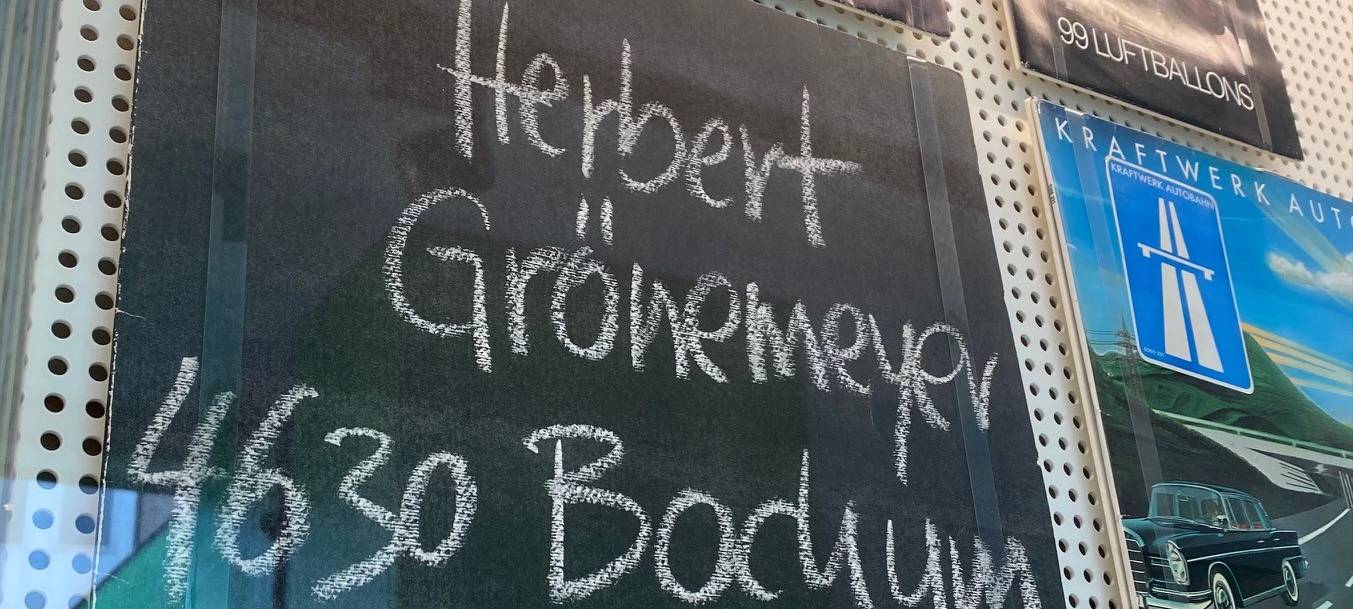 Herbert
Grönemeyer
4630 Bochum
99 LUFTBALLONS
KRAFTWERK AUTO
KRAFTWERK AUTOBAHN